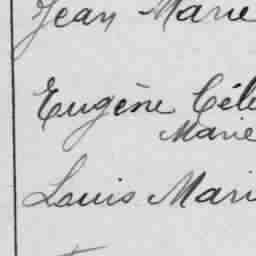 Jean Marie
Eugène Céle
Marie
Louis Mari